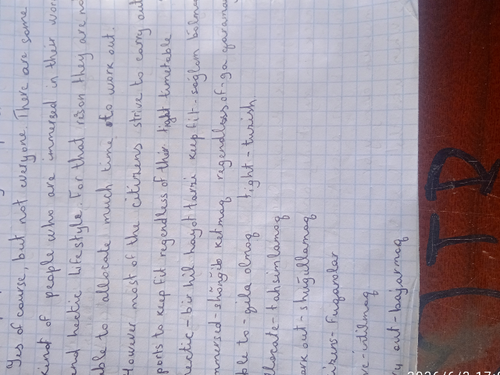 Yes of course, but not everyone. There are some
kind of people who are immersed in their wor
and hectic Lifestyle. For that rison they are no
able to allocate much time to work out.
However most of the citizens strive to carry out
ports to keep fit regendless of their tight timetable
hectic - bir hil hayot tarzi keep fit - soğlom bolmoq
mmersed - shönğib ketmoq regendless of - ga qaramay
ble to - qila olmoq tight - turish.
llocate - tahsimlamoq
ork out - shuğullamoq
izens - Fuqarolar
ve - intilmoq
ry out - bajarmoq
JTB